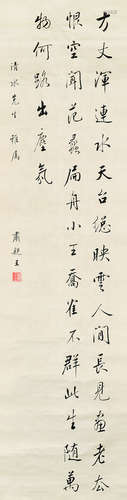 方丈渾連水天台総映雲人間長見畫老去
恨空聞范蠡扁舟小王喬隺不群此生隨萬
物何路出塵氛
清水先生雅屬
肅親王